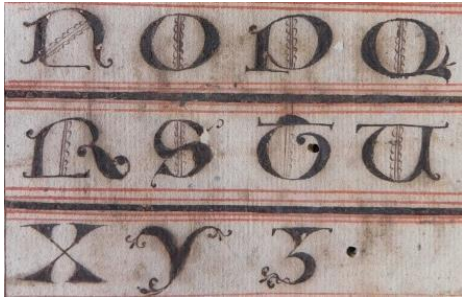 N O P Q
R S T U
X Y Z